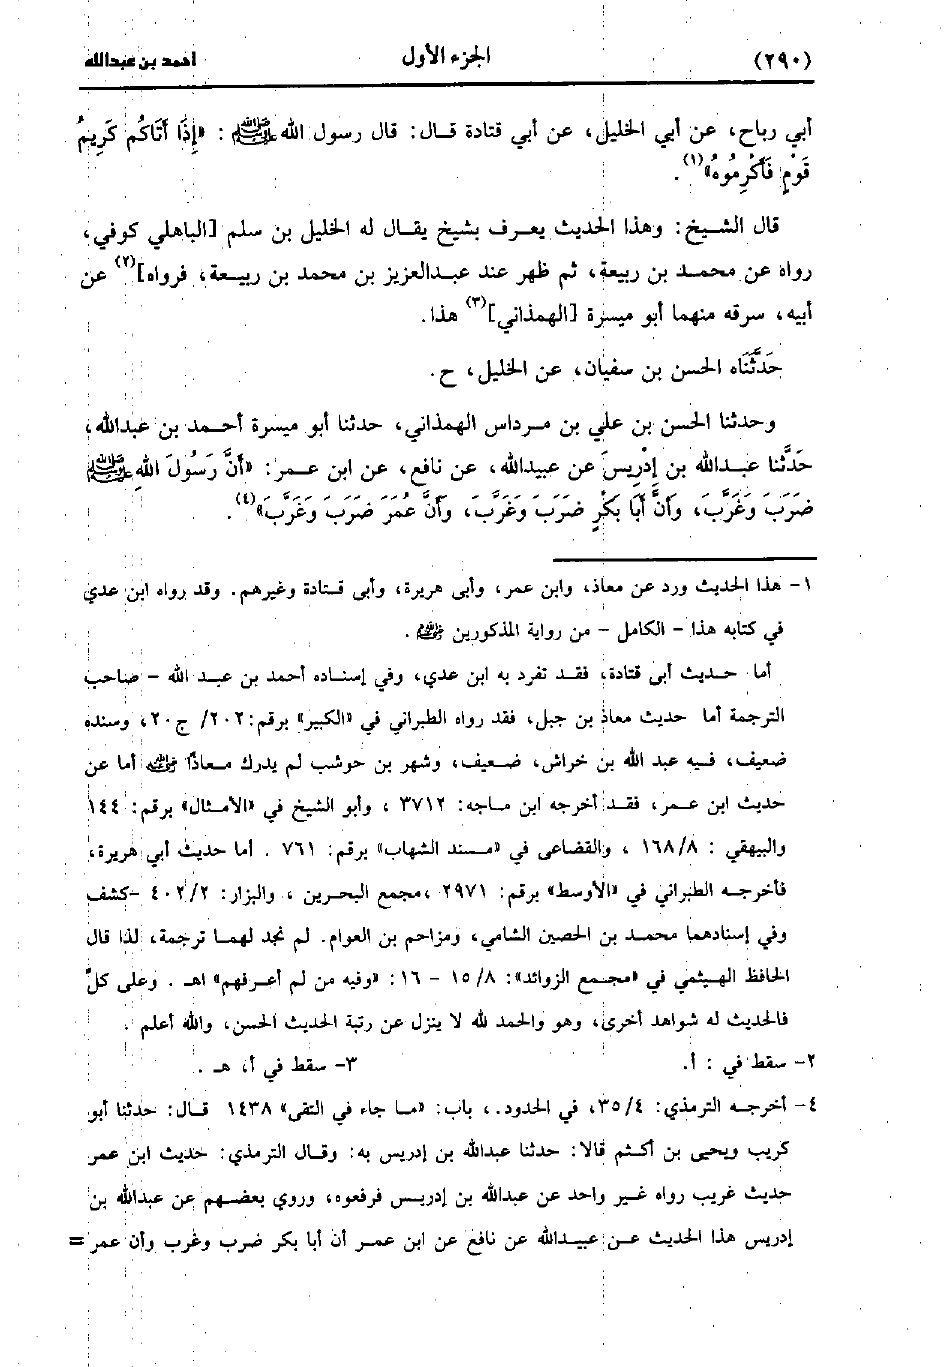 (٢٩٠) الجزء الأول احمد بن عبدالله
أبي رباح، عن أبي الخليل، عن أبي قتادة قال: قال رسول الله ﷺ : «إِذَا أَتَاكُم كَرِيمُ
قَوْمٍ فَأَكْرِمُوهُ»(١).
قال الشيخ: وهذا الحديث يعرف بشيخ يقال له الخليل بن سلم [الباهلي كوفي،
رواه عن محمد بن ربيعة، ثم ظهر عند عبدالعزيز بن محمد بن ربيعة، فرواه](٢) عن
أبيه، سرقه منهما أبو ميسرة [الهمذاني](٣) هذا.
حَدَّثَنَاه الحسن بن سفيان، عن الخليل، ح.
وحدثنا الحسن بن علي بن مرداس الهمذاني، حدثنا أبو ميسرة أحمد بن عبدالله،
حَدَّثنا عبدالله بن إِدْرِيسَ عن عبيدالله، عن نافع، عن ابن عمر: «أَنَّ رَسُولَ اللهِ ﷺ
ضَرَبَ وَغَرَّبَ، وَأَنَّ أَبَا بَكْرٍ ضَرَبَ وَغَرَّبَ، وَأَنَّ عُمَرَ ضَرَبَ وَغَرَّبَ»(٤).
١- هذا الحديث ورد عن معاذ، وابن عمر، وأبى هريرة، وأبى قتادة وغيرهم. وقد رواه ابن عدي
في كتابه هذا - الكامل - من رواية المذكورين ﷺ .
أما حديث أبى قتادة، فقد تفرد به ابن عدي، وفي إسناده أحمد بن عبد الله - صاحب
الترجمة أما حديث معاذ بن جبل، فقد رواه الطبراني في «الكبير» برقم: ٢٠٢/ ج٢٠، وسنده
ضعيف، فيه عبد الله بن خراش، ضعيف، وشهر بن حوشب لم يدرك معاذًا أما عن
حديث ابن عمر، فقد أخرجه ابن ماجه: ٣٧١٢ ، وأبو الشيخ في «الأمثال» برقم: ١٤٤
والبيهقي : ١٦٨/٨ ، والقضاعى في «مسند الشهاب» برقم: ٧٦١ . أما حديث أبي هريرة،
فأخرجه الطبراني في «الأوسط» برقم: ٢٩٧١ ،مجمع البحرين ، والبزار: ٤٠٢/٢ -كشف
وفي إسنادهما محمد بن الحصين الشامي، ومزاحم بن العوام. لم نجد لهما ترجمة، لذا قال
الحافظ الهيثمي في «مجمع الزوائد»: ١٥/٨ - ١٦: «وفيه من لم أعرفهم» اهـ . وعلى كلٍّ
فالحديث له شواهد أخرى، وهو والحمد لله لا ينزل عن رتبة الحديث الحسن، والله أعلم .
٢- سقط في : أ. ٣- سقط في أ، هـ .
٤- أخرجه الترمذي: ٣٥/٤، في الحدود.، باب: «ما جاء في التقى» ١٤٣٨ قال: حدثنا أبو
كريب ويحيى بن أكثم قالا: حدثنا عبدالله بن إدريس به: وقال الترمذي: حديث ابن عمر
حديث غريب رواه غير واحد عن عبدالله بن إدريس فرفعوه، وروي بعضهم عن عبدالله بن
إدريس هذا الحديث عن عبيدالله عن نافع عن ابن عمر أن أبا بكر ضرب وغرب وأن عمر =